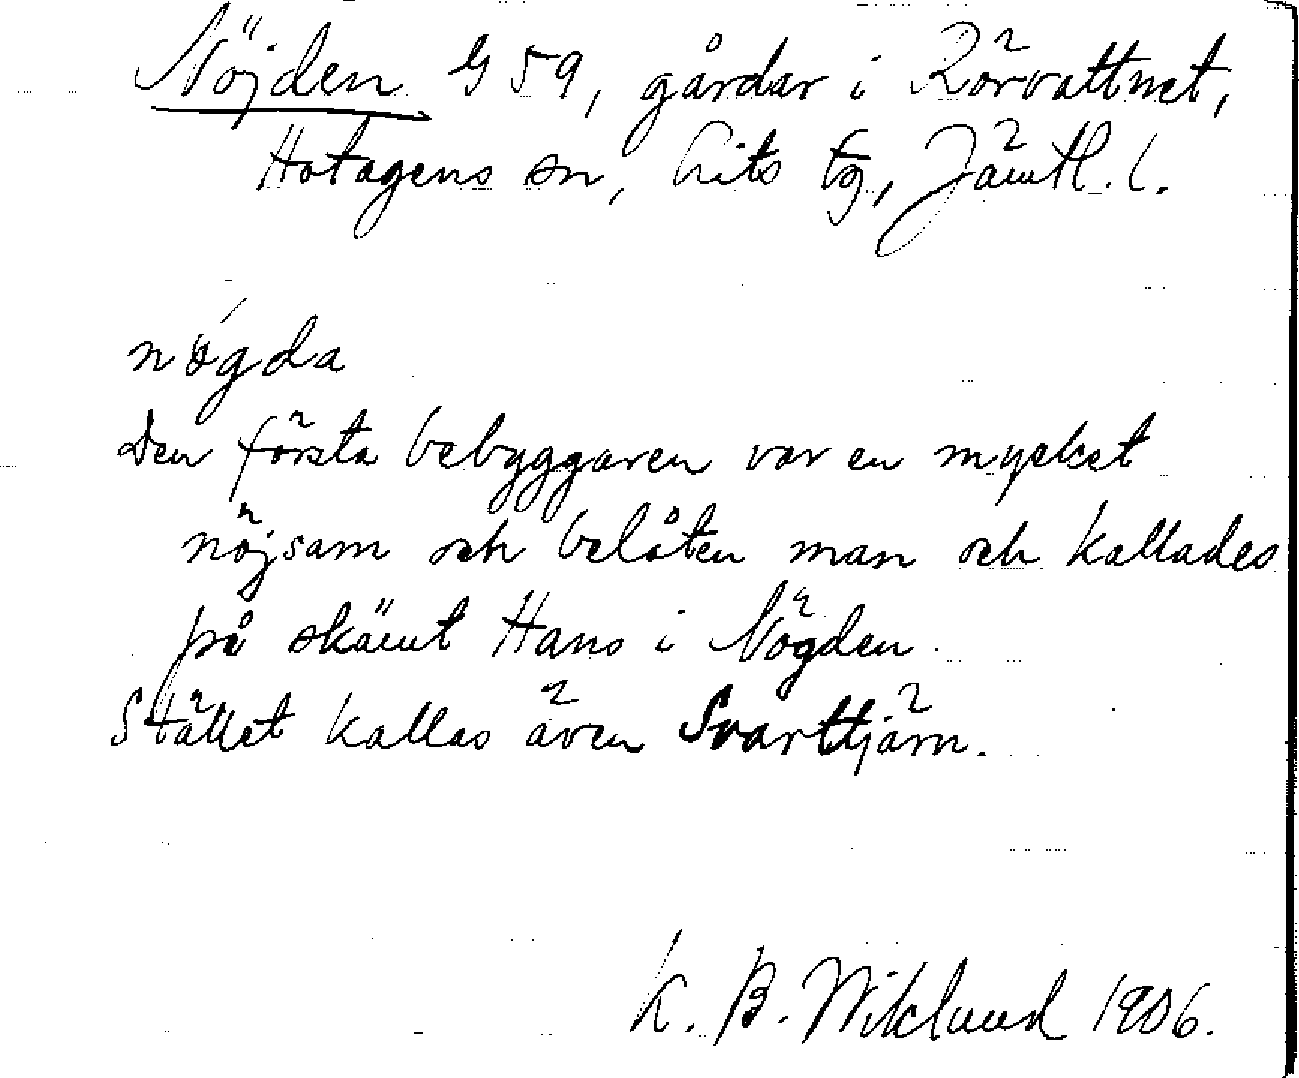 Nöjden G 59, gårdar i Rörvattnet,
Hotagens sn, Lits tg, Jämtl. l.
nǿgda
Den första bebyggaren var en mycket
nöjsam och belåten man och kallades
på skämt Hans i Nögden
Stället kallas även Svarttjärn.
K. B. Wiklund 1906.